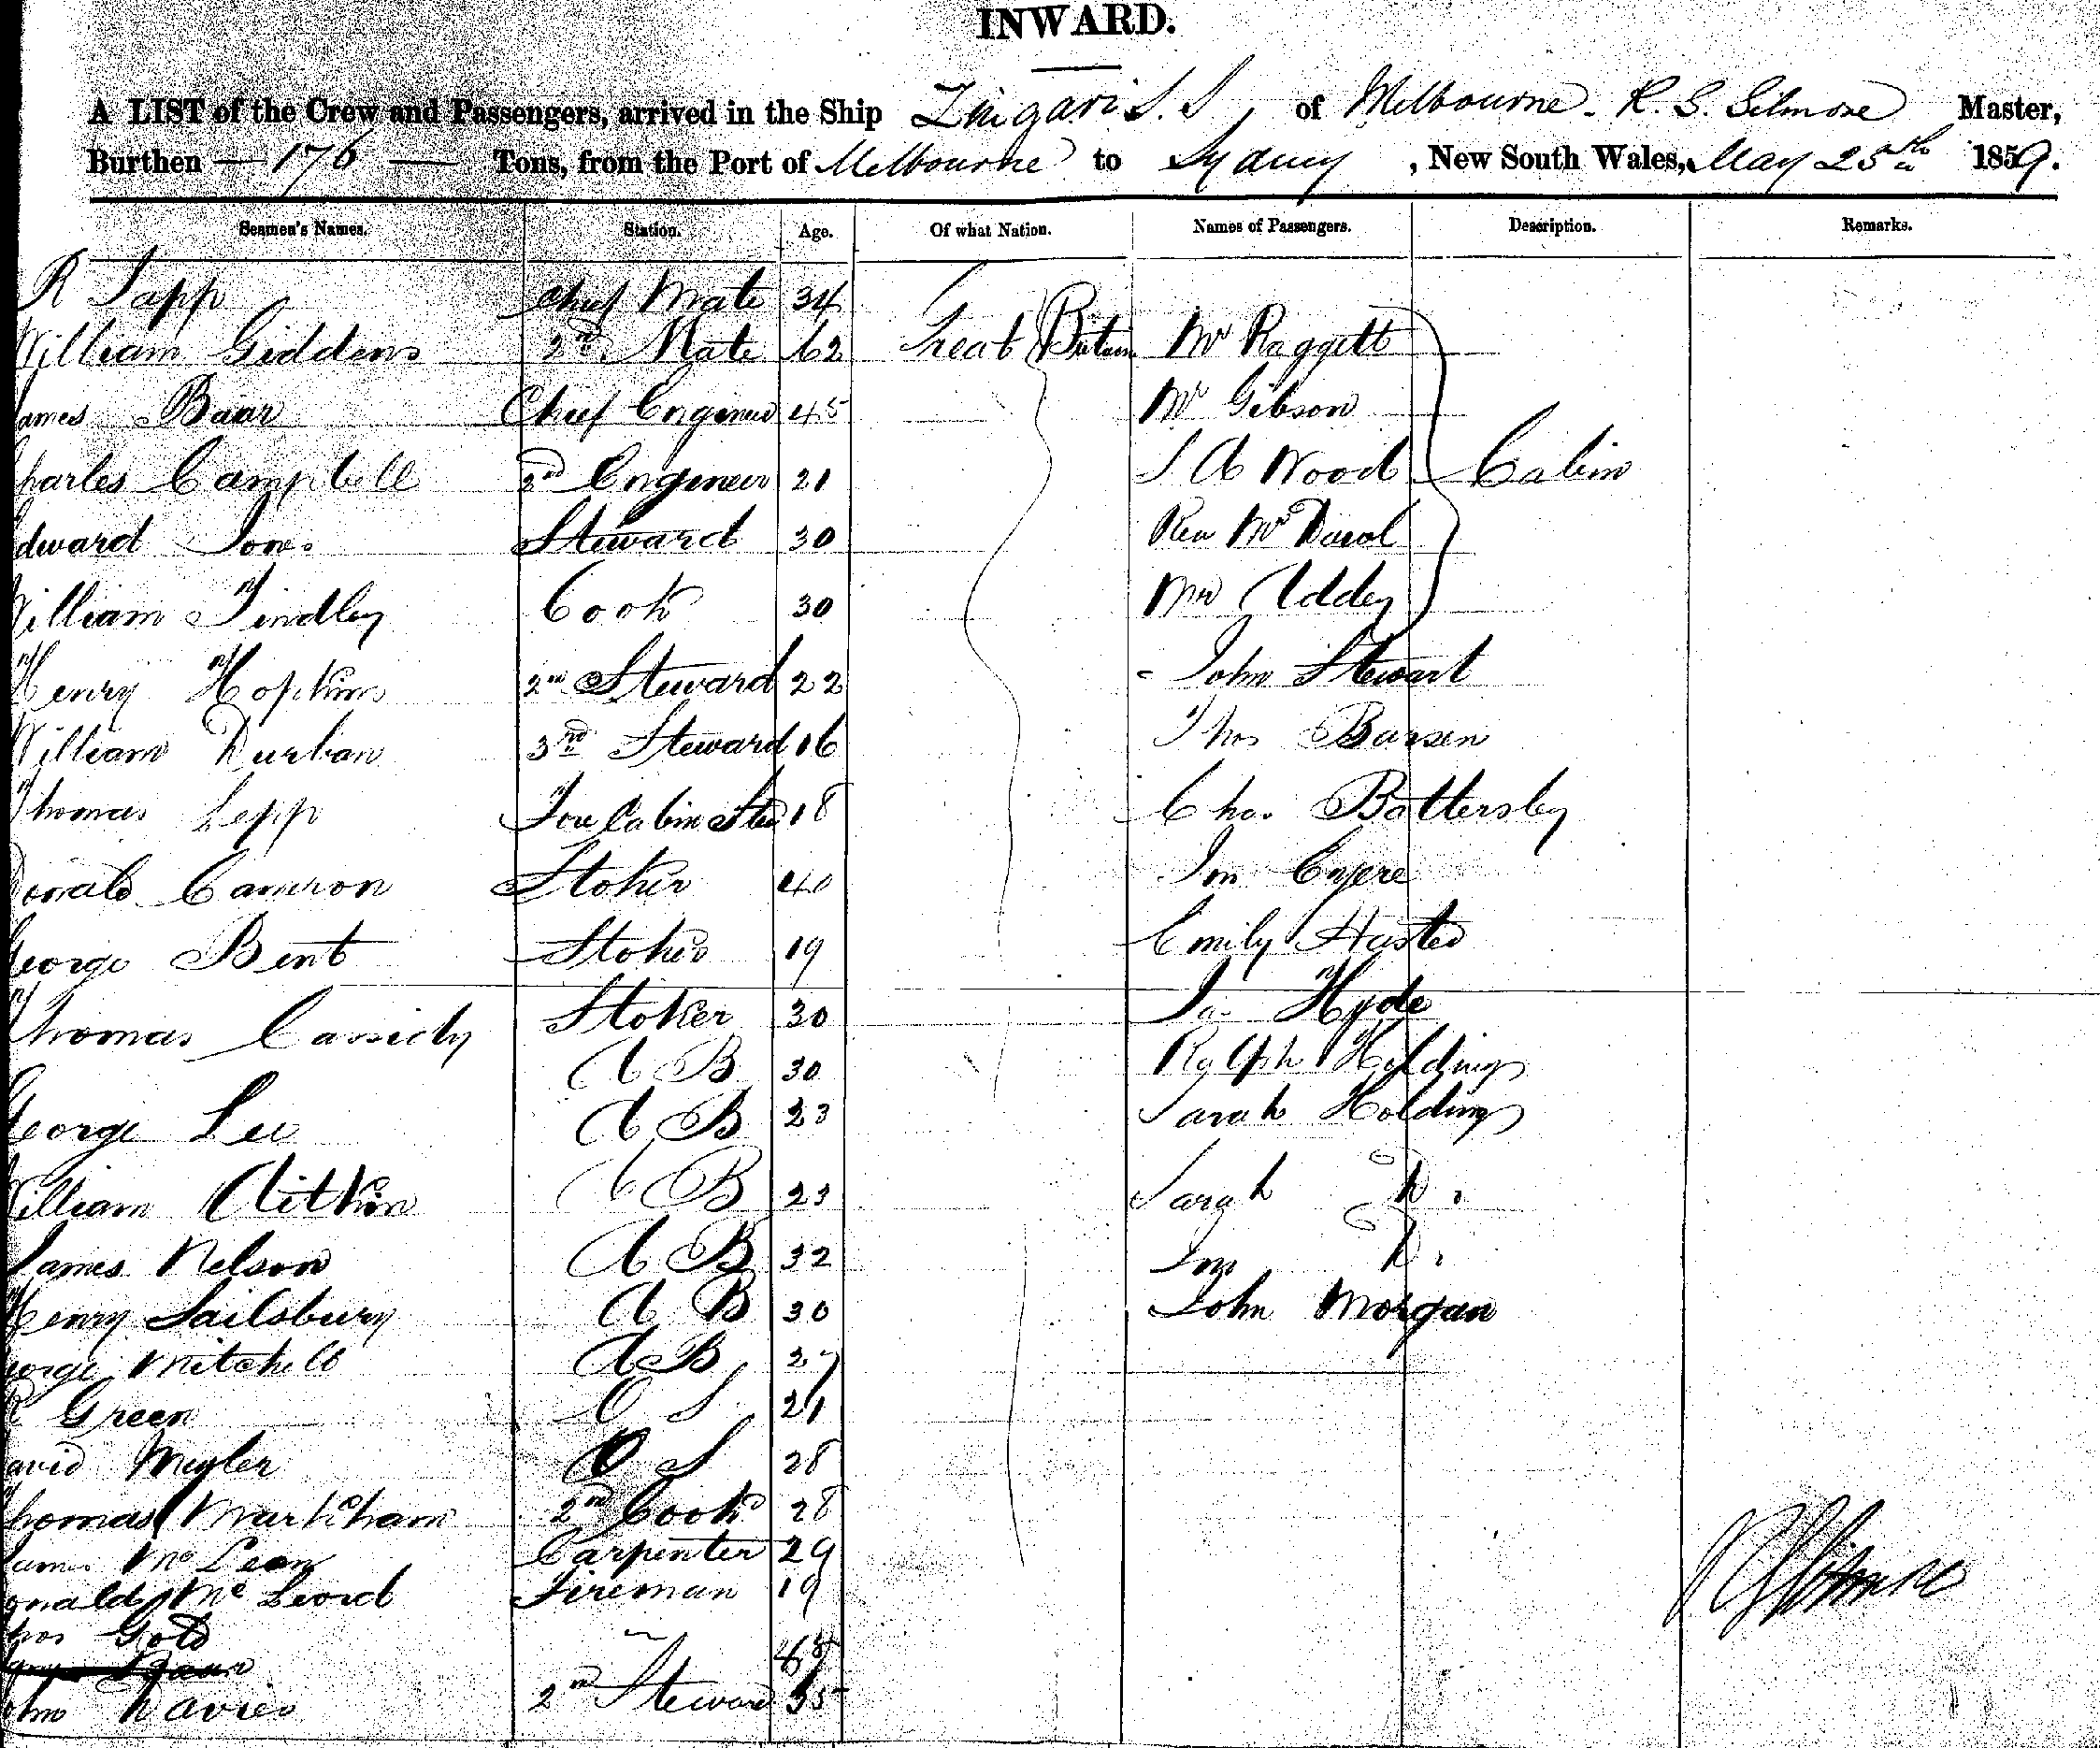 INWARD.
A LIST of the Crew and Passengers, arrived in the Ship Zingari S.S, of Melbourne. R. S. Gilmore Master,
Burthen — 176 — Tons, from the Port of Melbourne to Sydney, New South Wales, May 25th 1859.
Seamen's Names. Station. Age. Of what Nation. Names of Passengers. Description. Remarks.
R Tapp Chief Mate 34
William Giddens 2nd Mate 62 Great Britain Mr Raggett
James Baar Chief Engineer 45 Mr Gibson
Charles Campbell 2nd Engineer 21 S A Wood Cabin
Edward Jones Steward 30 Rev Mr
William Findley Cook 30 Addey
Henry Hopkins 2nd Steward 22 John Stewart
William Durban 3rd Steward 16 Thos
Thomas Lepp Fore Cabin Stew 18 Chas. Battersley
Donald Cameron Stoker 40
George Bent Stoker 19 Emily Husted
Thomas Cassidy Stoker 30 Ja. Hyde
A B 30 Ralph Holdings
George Lee A B 23 Sarah Holdings
William Aitkin A B 23 Sarah D.
James Nelson A B 32 D.
Henry Sailsbury A B 30 John Morgan
George Mitchell A B 27
R Green O S 21
David O S 28
Thomas Markham 2nd Cook 28
James McLean Carpenter 29
Donald McLeord Fireman 19
Thos Gold
John Davies 2nd Steward 35